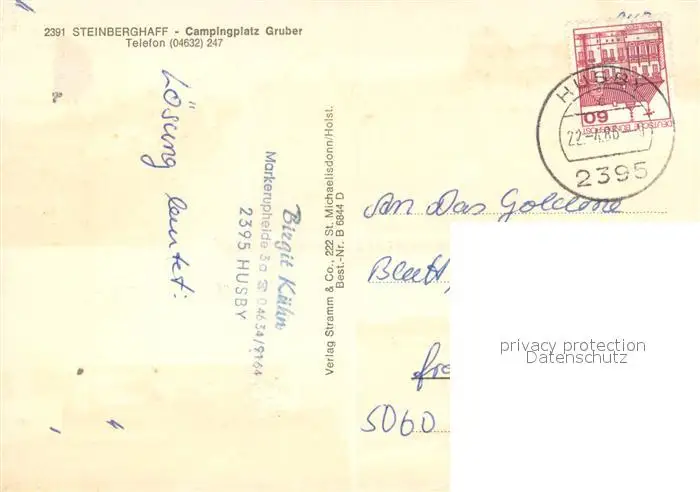 2391 STEINBERGHAFF - Campingplatz Gruber
Telefon (04632) 247
Lösung lautet:
Birgit Kühn
Markerupheide 3a ☎ 04634/9164
2395 HUSBY
Verlag Stramm & Co., 222 St. Michaelisdonn/Holst.
Best.-Nr. B 6844 D
60
DEUTSCHE BUNDESPOST
HUSBY
22.-4.86
2395
An Das Goldene
Blatt,
5060
privacy protection
Datenschutz